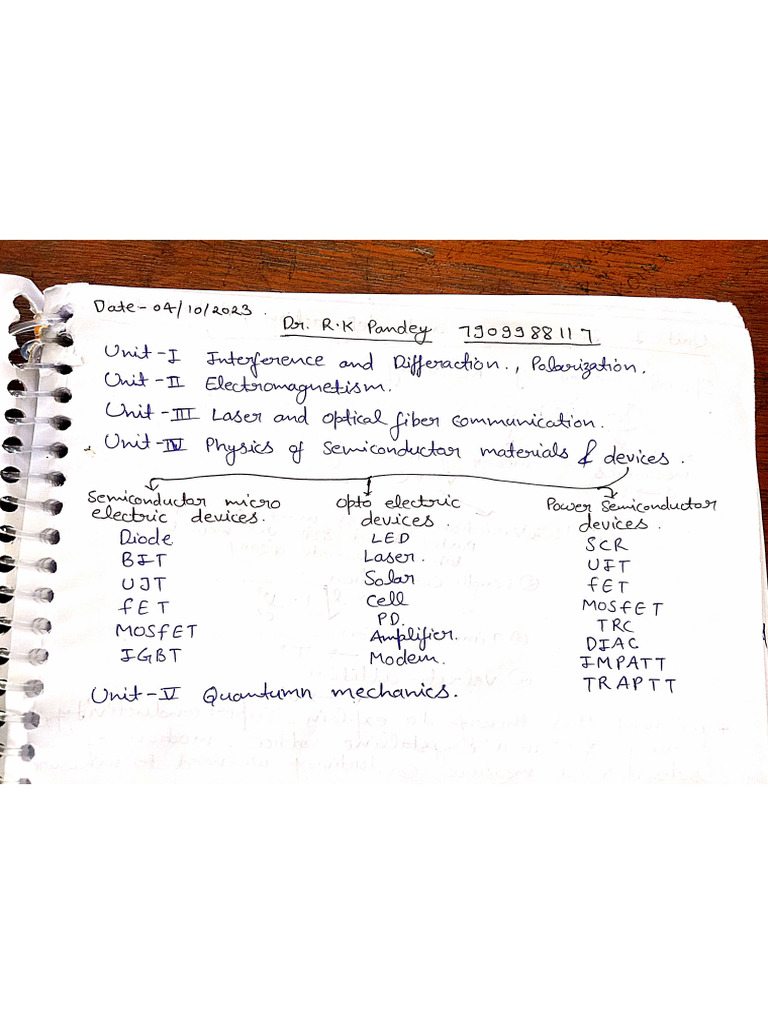 Date - 04/10/2023.
Dr. R.K Pandey 7909988117
Unit-I Interference and Differaction., Polarization.
Unit-II Electromagnetism.
Unit-III Laser and optical fiber communication.
Unit-IV Physics of semiconductor materials & devices.
Semiconductor micro
electric devices.
Diode
BJT
UJT
FET
MOSFET
IGBT
opto electric
devices.
LED
Laser.
Solar
Cell
PD.
Amplifier.
Modem.
Power Semiconductor
devices.
SCR
UJT
FET
MOSFET
TRC
DIAC
IMPATT
TRAPTT
Unit-V Quantumn mechanics.